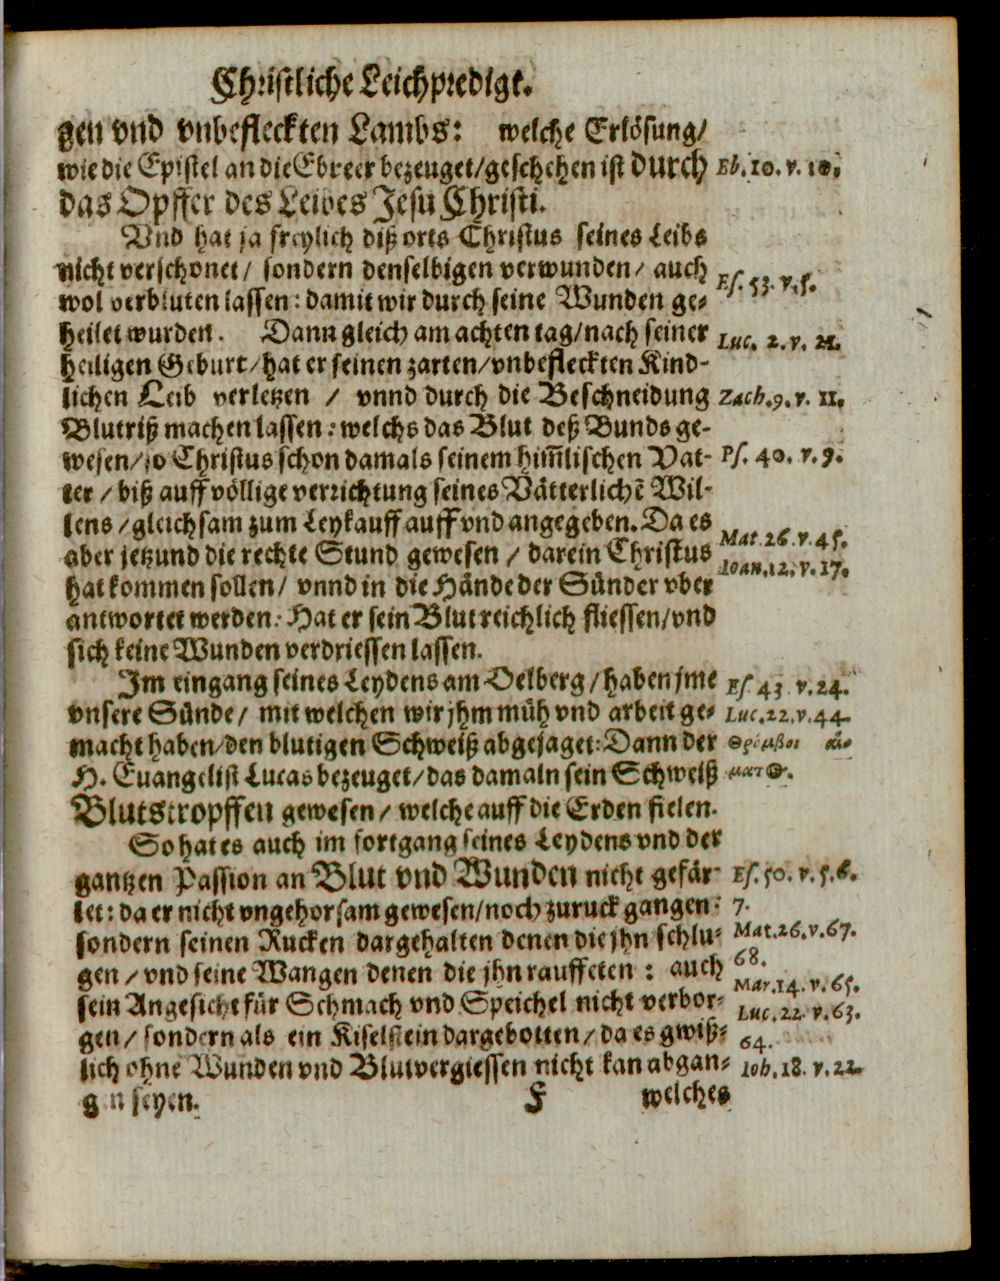 Christliche Leichpredigt.
gen vnd vnbefleckten Lambs: welche Erlösung/
wie die Epistel an die Ebreer bezeuget/geschehen ist durch Eb. 10. v. 10.
das Opffer des Leibes Jesu Christi.
Vnd hat ja freylich diß orts Christus seines Leibs
nicht verschonet/ sondern denselbigen verwunden/ auch
wol verbluten lassen: damit wir durch seine Wunden ge- Es. 53. v. 5.
heilet wurden. Dann gleich am achten tag/nach seiner Luc. 2. v. 21.
heiligen Geburt/hat er seinen zarten/vnbefleckten Kind-
lichen Leib verletzen / vnnd durch die Beschneidung Zach. 9. v. 11.
Blutriß machen lassen: welchs das Blut deß Bunds ge-
wesen/so Christus schon damals seinem him̃lischen Vat- Ps. 40. v. 9.
ter / biß auff völlige verrichtung seines Vätterlichē Wil-
lens /gleichsam zum Leykauff auff vnd angegeben. Da es
aber jetzund die rechte Stund gewesen / darein Christus Mat. 26. v. 45.
hat kommen sollen/ vnnd in die Hände der Sünder vber Ioan. 12. v. 17.
antwortet werden: Hat er sein Blut reichlich fliessen/vnd
sich keine Wunden verdriessen lassen.
Im eingang seines Leydens am Oelberg /haben jme Es. 43 v. 24.
vnsere Sünde/ mit welchen wir jhm müh vnd arbeit ge- Luc. 22. v. 44.
macht haben/den blutigen Schweiß abgejaget: Dann der Θρόμβοι αἵ-
H. Euangelist Lucas bezeuget/das damaln sein Schweiß ματος.
Blutstropffen gewesen / welche auff die Erden fielen.
So hat es auch im fortgang seines Leydens vnd der
gantzen Passion an Blut vnd Wunden nicht gefär- Es. 50. v. 5. 6.
let: da er nicht vngehorsam gewesen/noch zuruck gangen: 7.
sondern seinen Rucken dargehalten denen die jhn schlu- Mat. 26. v. 67.
gen / vnd seine Wangen denen die jhn raufften: auch 68.
sein Angesicht für Schmach vnd Speichel nicht verbor- Mar. 14. v. 65.
gen / sondern als ein Kiselstein dargebotten / da es gwiß- Luc. 22 v. 63.
64.
lich ohne Wunden vnd Blutvergiessen nicht kan abgan- Ioh. 18. v. 22.
gen seyen. F welches